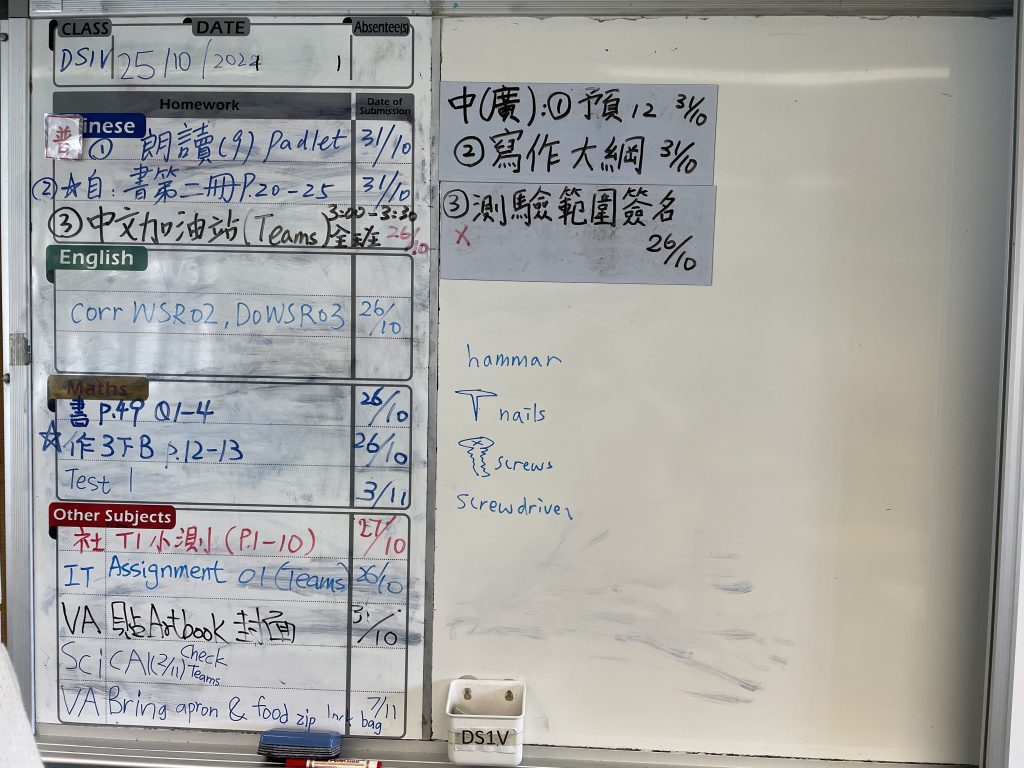 CLASS DATE Absentee(s)
DS1V 25/10/2024 1
Homework Date of Submission
普 Chinese
① 朗讀(9) Padlet 31/10
② ☆自:書第二冊P.20-25 31/10
③ 中文加油站(Teams) 3:00-3:30 26/10
English
Corr WSR02, Do WSR03 26/10
Maths
書 P.49 Q1-4 26/10
☆作3下B P.12-13 26/10
Test 1 3/11
Other Subjects
社 T1小測(P.1-10) 27/10
IT Assignment 01 (Teams) 26/10
VA 貼Artbook封面 31/10
Sci CA1(2/11) Check Teams
VA Bring apron & food zip lock bag 7/11
中(廣):① 預12 31/10
② 寫作大綱 31/10
③ 測驗範圍簽名
X 26/10
hammar
nails
screws
screwdriver
DS1V